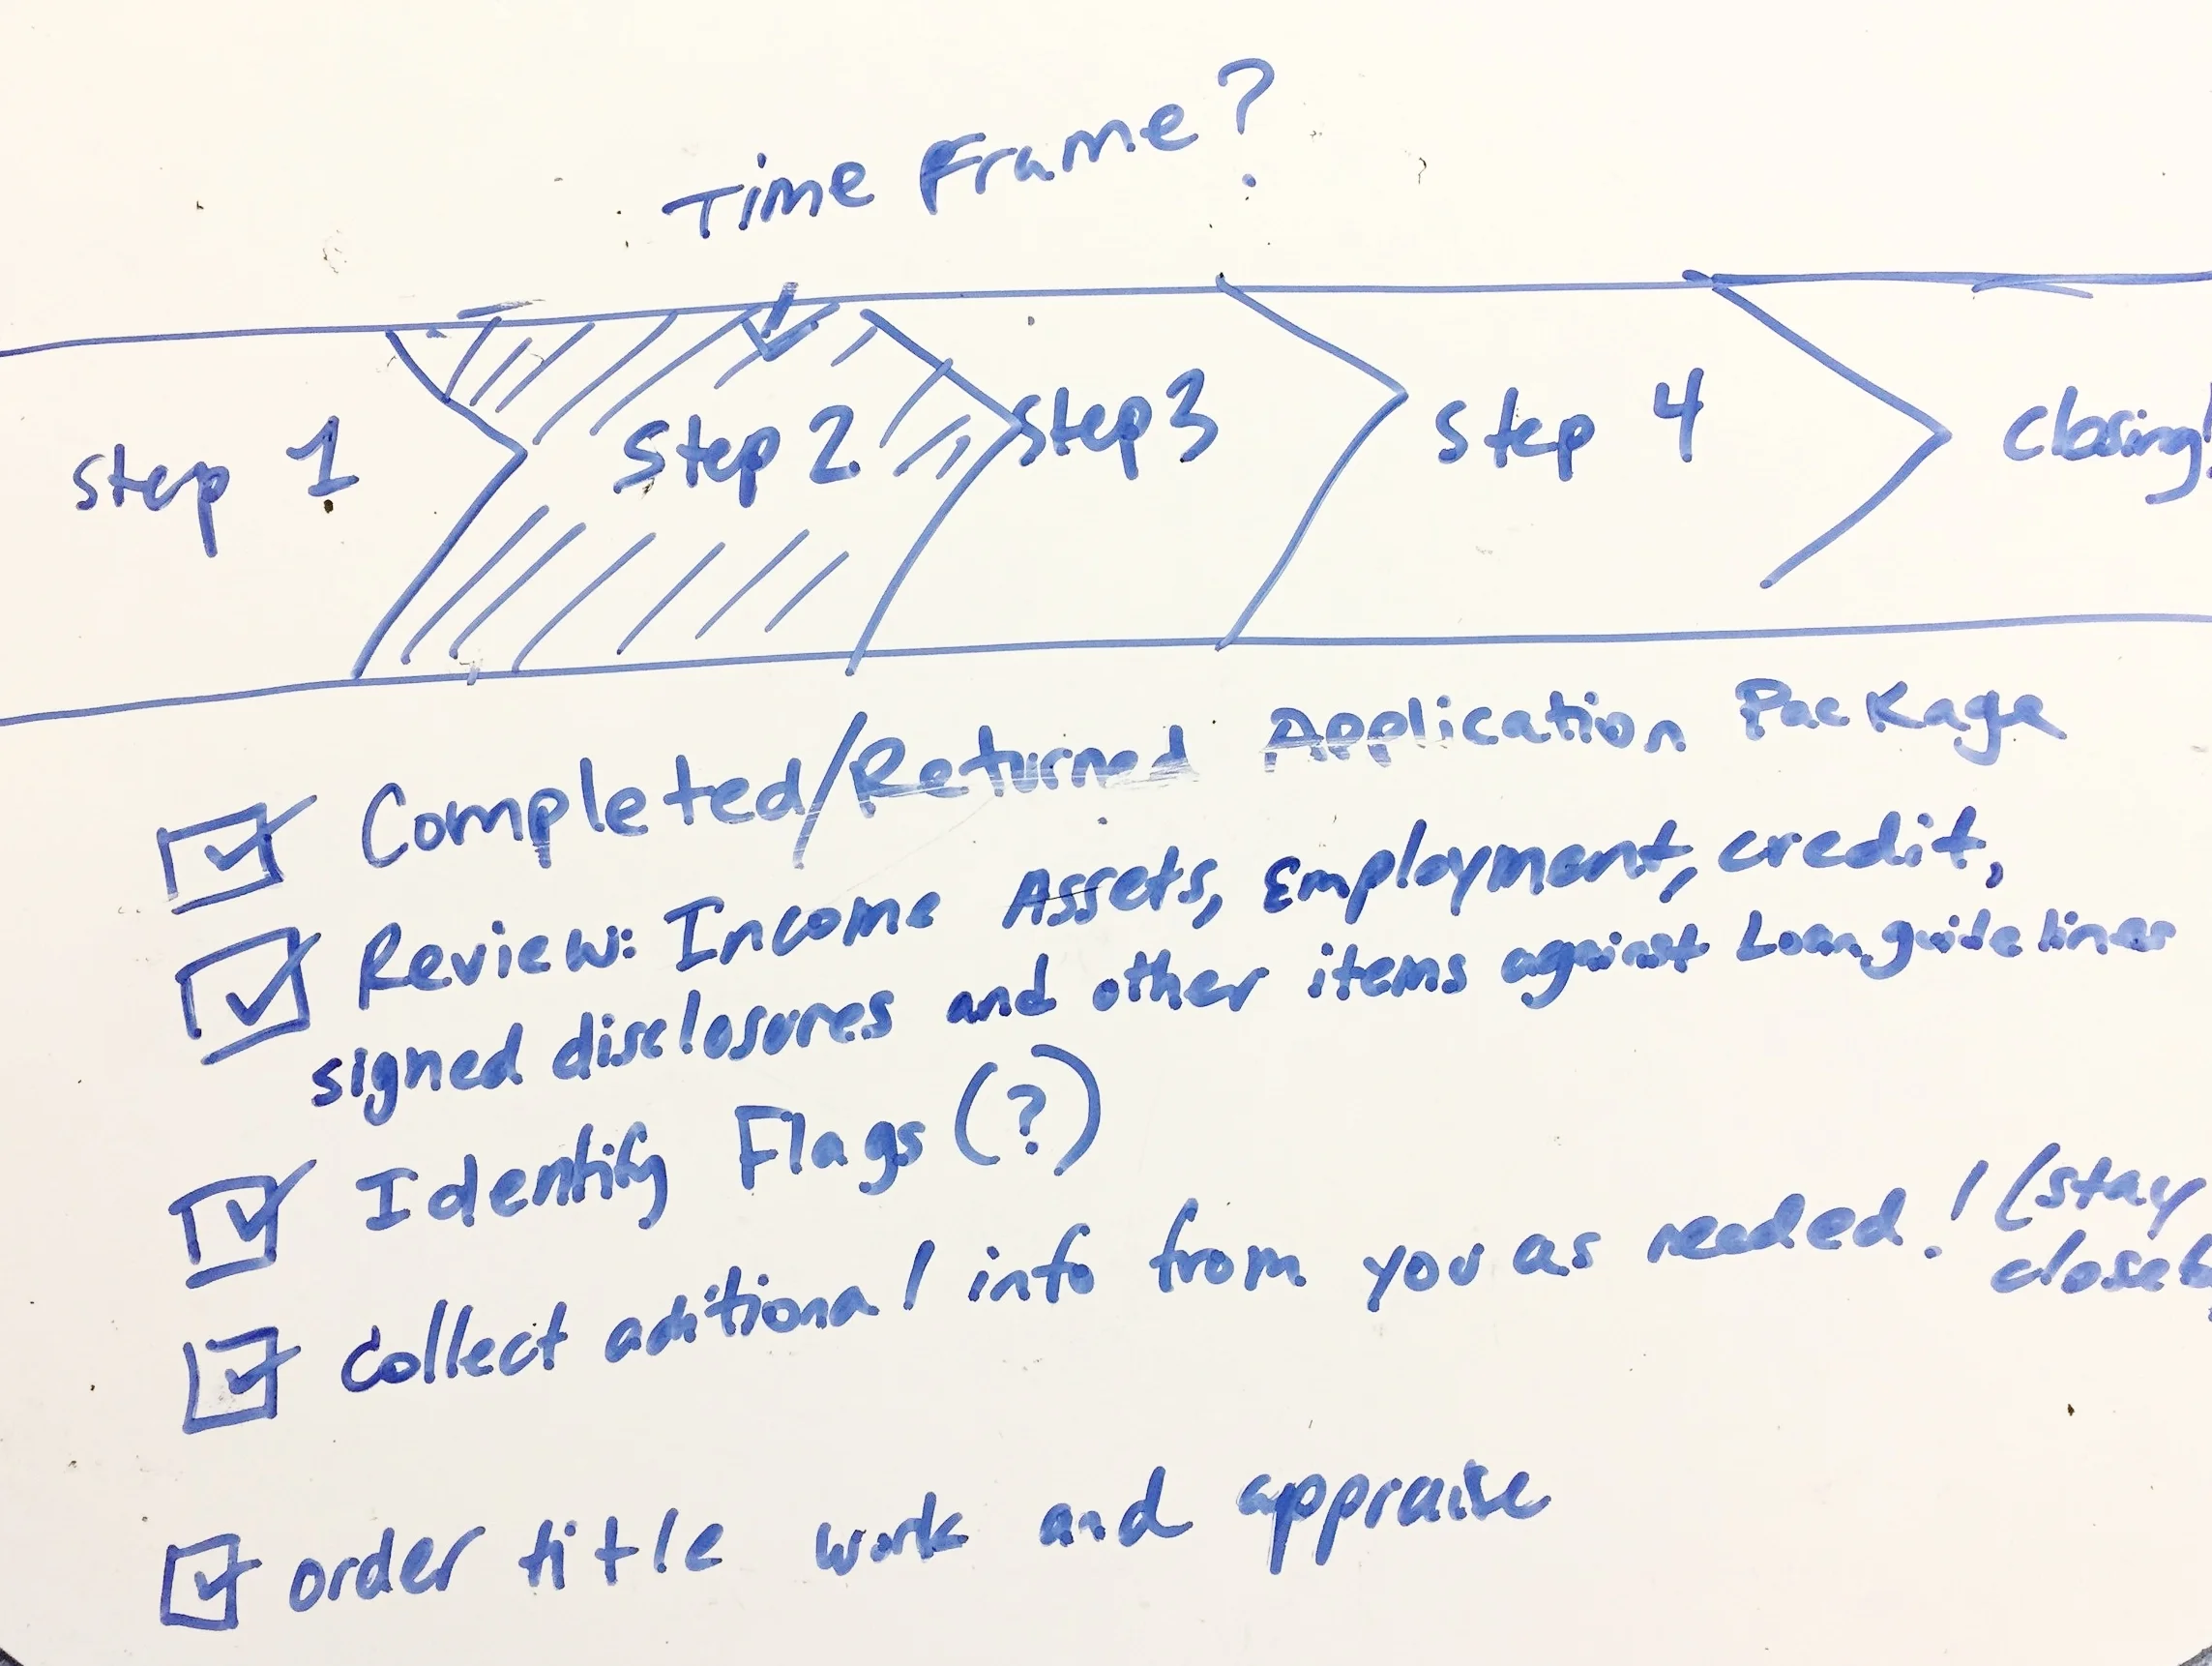 Time Frame?
Step 1 Step 2 Step 3 Step 4 Closing!
Completed/Returned Application Package
Review: Income Assets, Employment, credit,
signed disclosures and other items against Loan guidelines
Identify Flags (?)
Collect aditional info from you as needed! (stay
order title work and appraise